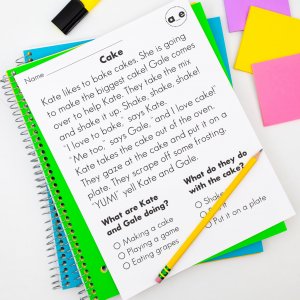 a_e
Name
Cake
Kate likes to bake cakes. She is going
to make the biggest cake! Gale comes
over to help Kate. They take the mix
and shake it up. Shake, shake, shake!
"I love to bake," says Kate.
"Me too," says Gale, "and I love cake!"
Kate takes the cake out of the oven.
They gaze at the cake and put it on a
plate. They scrape off some frosting.
"YUM!" yell Kate and Gale.
What are Kate
and Gale doing?
Making a cake
Playing a game
Eating grapes
What do they do
with the cake?
Shake
it
Put it on a plate